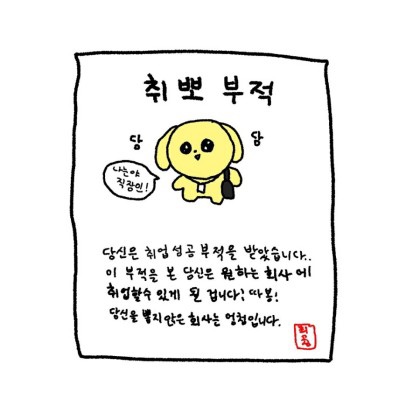 취뽀 부적
당 당
나는야
직장인!
당신은 취업 성공 부적을 받았습니다..
이 부적을 본 당신은 원하는 회사에
취업할수 있게 된 겁니다; 따봉!
당신을 뽑지않은 회사는 멍청입니다.